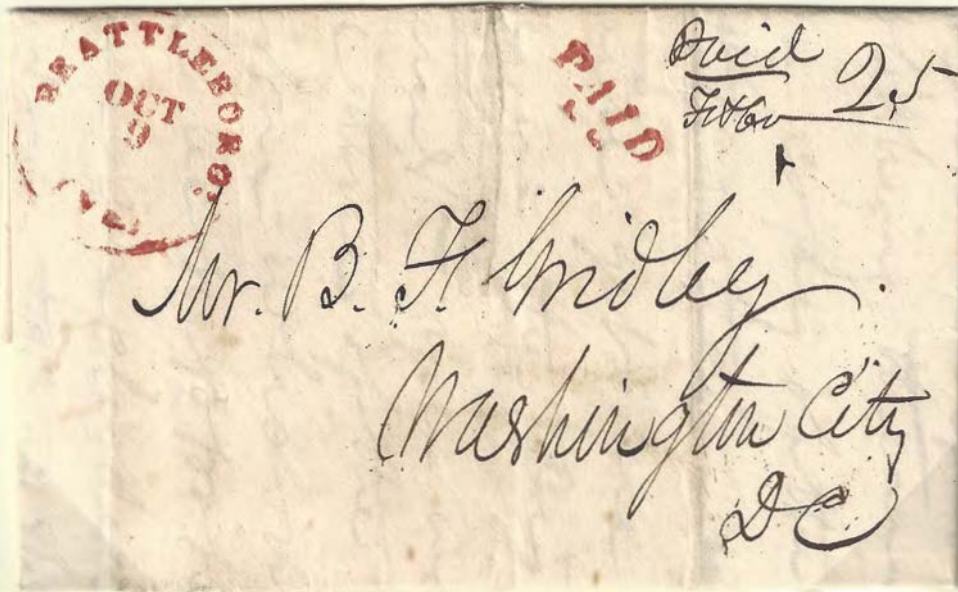 BRATTLEBORO'
OCT
9
PAID
Paid
25
Mr. B. F. Gridley
Washington City
D C